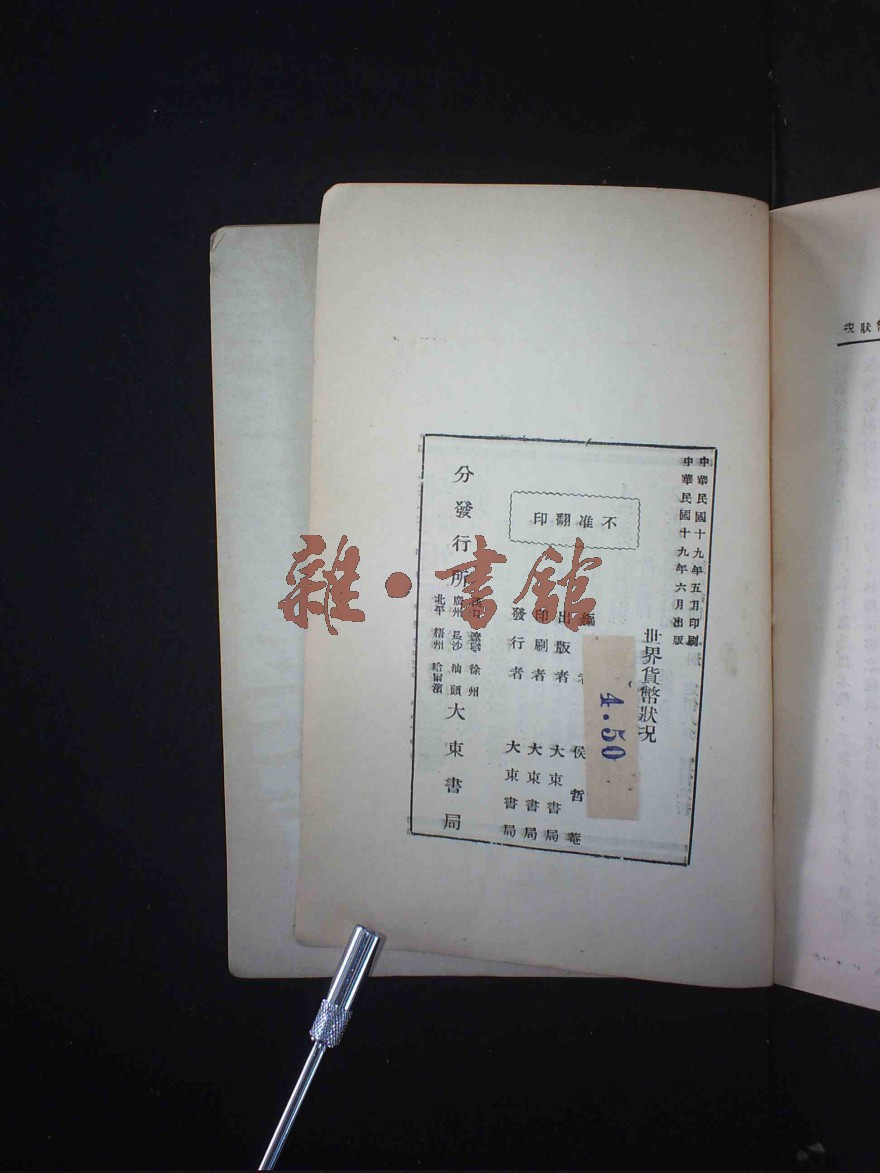 中華民國十九年五月印刷
中華民國十九年六月出版
世界貨幣狀況
不准翻印
編 者 侯哲葊
出版者 大東書局
印刷者 大東書局
發行者 大東書局
分發行所
漢口 遼寧 徐州
廣州 長沙 汕頭
北平 梧州 哈爾濱
大東書局
4.50
雜·書館
幣狀況